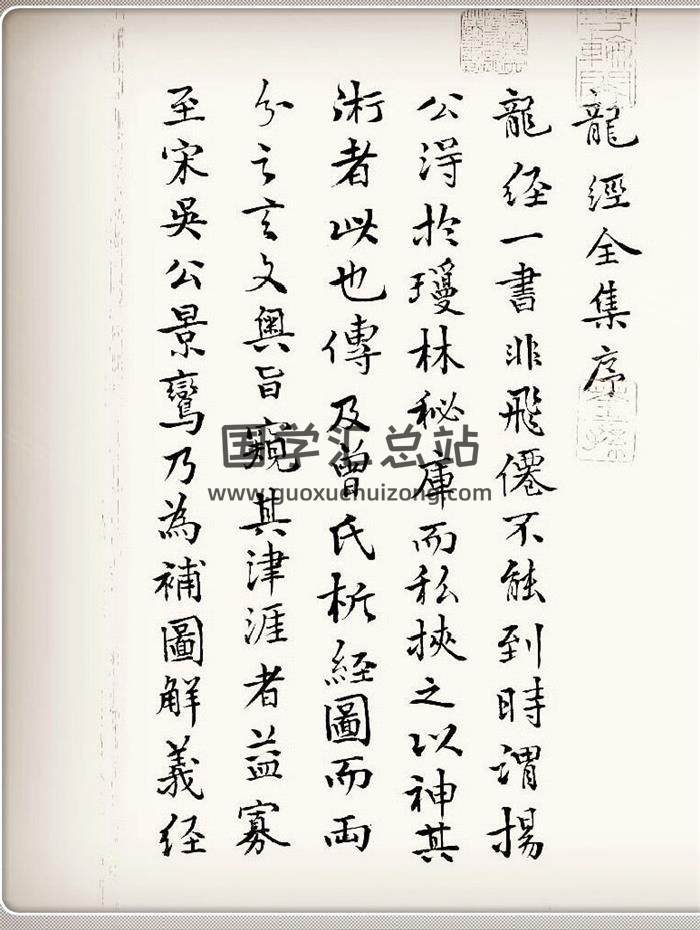 龍經全集序
龍経一書非飛僊不能到時謂揚
公淂扵瓊林秘庫而私挾之以神其
術者此也傳及曾氏析経圖而両
分之玄文奧旨窺其津涯者益寡
至宋吳公景鸞乃為補圖解義経
国学汇总站
www.guoxuehuizong.com